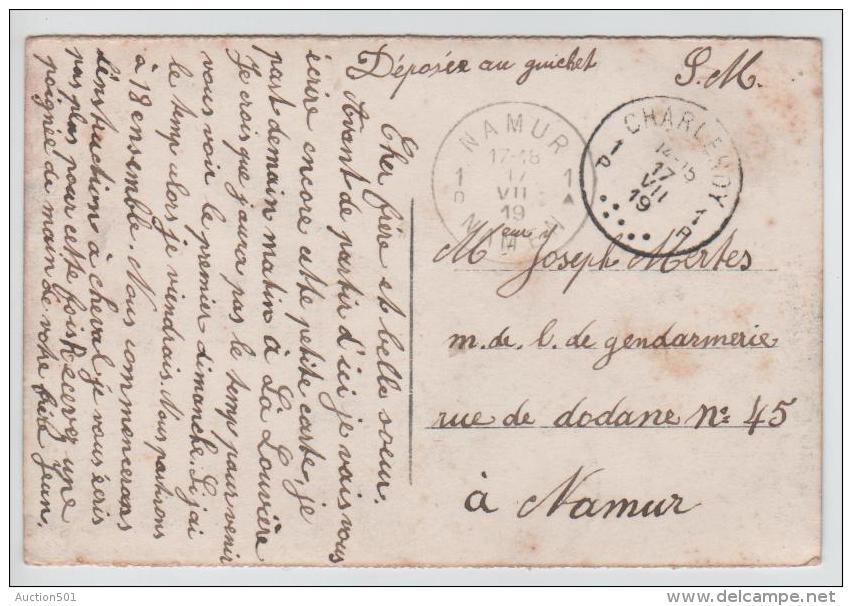 Déposée au guichet
S.M.
NAMUR
17-18
17
VII
19
1
1
D
A
NAMEN
CHARLEROY
14-15
17
VII
19
1
P
1
P
Meur Joseph Mertes
m. de. l. de gendarmerie
rue de dodane no 45
à Namur
Cher frère et belle soeur.
Avant de partir d'ici je vais vous
écrire encore cette petite carte, je
part demain matin à La Louvière
Je crois que j'aura pas le temp pour venir
vous voir le premier dimanche. Si j'ai
le temp alors je viendrais. Nous partsons
à 18 ensemble. Nous commencerons
l'instruction à cheval je vous écris
pas plus pour cette fois Recevez une
poignée de main de votre frère Jean.
Auction501
delcampe.net